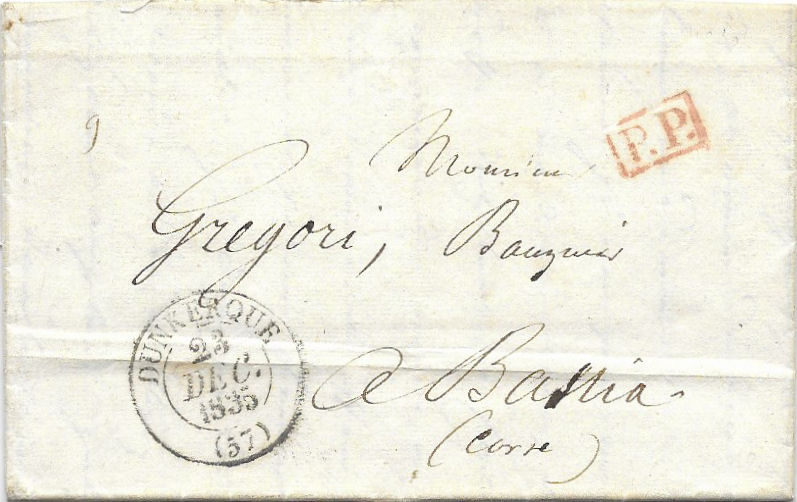 9
P.P.
Monsieur
Gregori, Banquier
DUNKERQUE
23
DEC.
1835
(57)
a Bastia
(Corse)